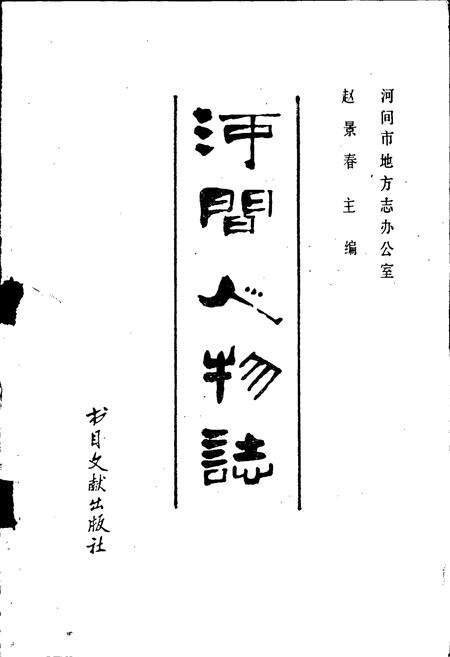 河间市地方志办公室
赵景春主编
河間人物誌
书目文献出版社